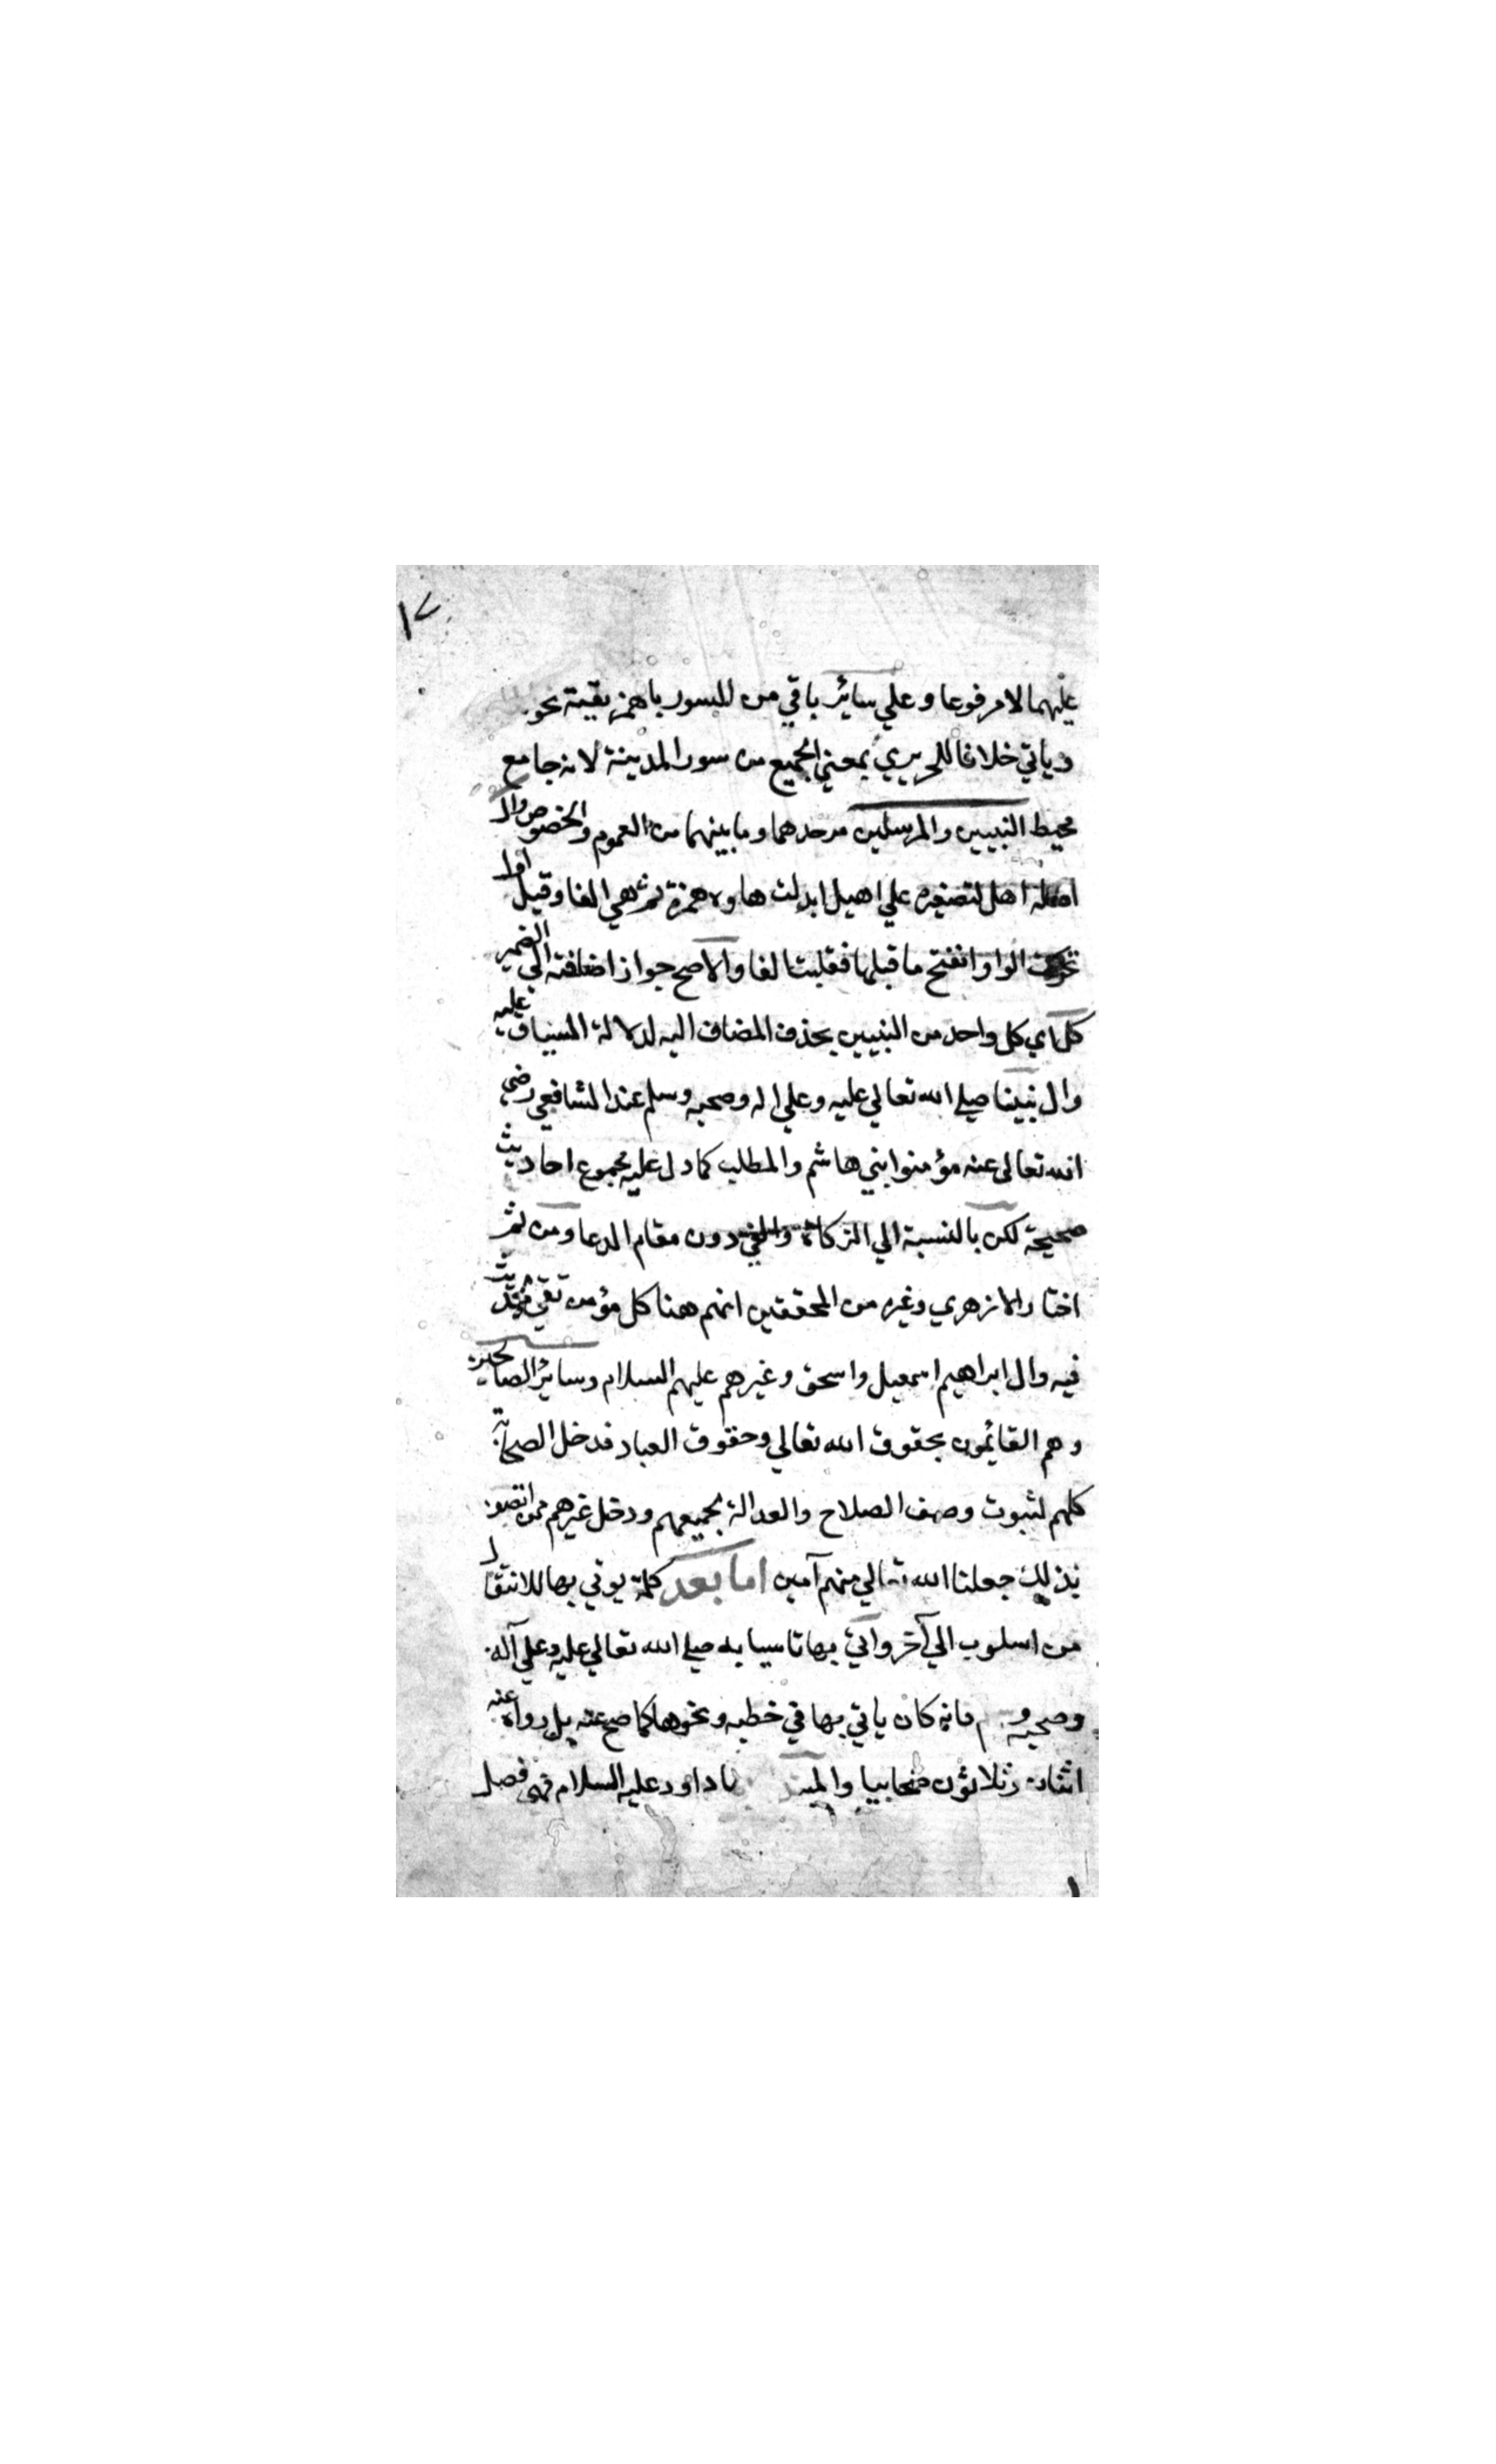 ١٧
عليهما الا مرفوعا وعلي سائر باقي من السور بالهمز بقية نحو
وياتي خلافا للحريري بمعني الجميع من سور المدينة لانه جامع
محيط النبيين والمرسلين مر حدهما وما بينهما من العموم والخصوص وال
اصله اهل لتصغيره علي اهيل ابدلت هاوه همزة ثم هي الفا وقيل اول
تحركت الواو وانفتح ما قبلها فقلبت الفا والاصح جواز اضافته الي الضمير
كل اي كل واحد من النبيين بحذف المضاف اليه لدلالة السياق عليه
وال نبينا صلي الله تعالي عليه وعلي اله وصحبه وسلم عند الشافعي رضي
الله تعالي عنه مؤمنوا بني هاشم والمطلب كما دل عليه مجموع احاديث
صحيحة لكن بالنسبة الي الزكاة والفي دون مقام الدعا ومن ثم
اختار الازهري وغيره من المحققين انهم هنا كل مؤمن تقي لحديث
فيه وال ابراهيم اسمعيل واسحق وغيرهم عليهم السلام وسائر الصالحين
وهم القائمون بحقوق الله تعالي وحقوق العباد فدخل الصحابة
كلهم لثبوت وصف الصلاح والعدالة لجميعهم ودخل غيرهم ممن اتصف
بذلك جعلنا الله تعالي منهم آمين اما بعد كلمة يوتي بها للانتقال
من اسلوب الي آخر واتي بها تاسيا به صلي الله تعالي عليه وعلي آله
وصحبه و م فانه كان ياتي بها في خطبه ونحوها كما صح عنه بل رواه عنه
اثنان وثلاثون صحابيا والمبتد بها داود عليه السلام فهي فصل